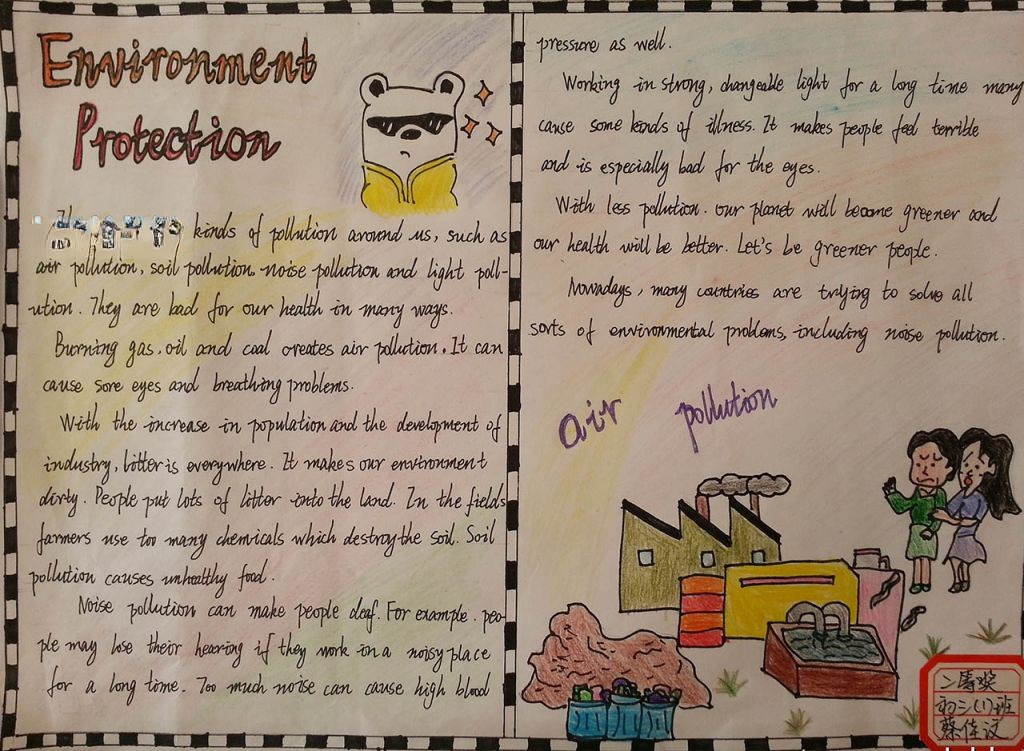 Environment
Protection
kinds of pollution around us, such as
air pollution, soil pollution, noise pollution and light poll-
ution. They are bad for our health in many ways.
Burning gas, oil and coal creates air pollution. It can
cause sore eyes and breathing problems.
With the increase in population and the development of
industry, litter is everywhere. It makes our environment
dirty. People put lots of litter into the land. In the fields
farmers use too many chemicals which destroy the soil. Soil
pollution causes unhealthy food.
Noise pollution can make people deaf. For example, peo-
ple may lose their hearing if they work in a noisy place
for a long time. Too much noise can cause high blood
pressure as well.
Working in strong, changeable light for a long time many
cause some kinds of illness. It makes people feel terrible
and is especially bad for the eyes.
With less pollution. our planet will become greener and
our health will be better. Let's be greener people.
Nowadays, many countries are trying to solve all
sorts of environmental problems, including noise pollution.
air pollution
二等奖
初二(1)班
蔡佳